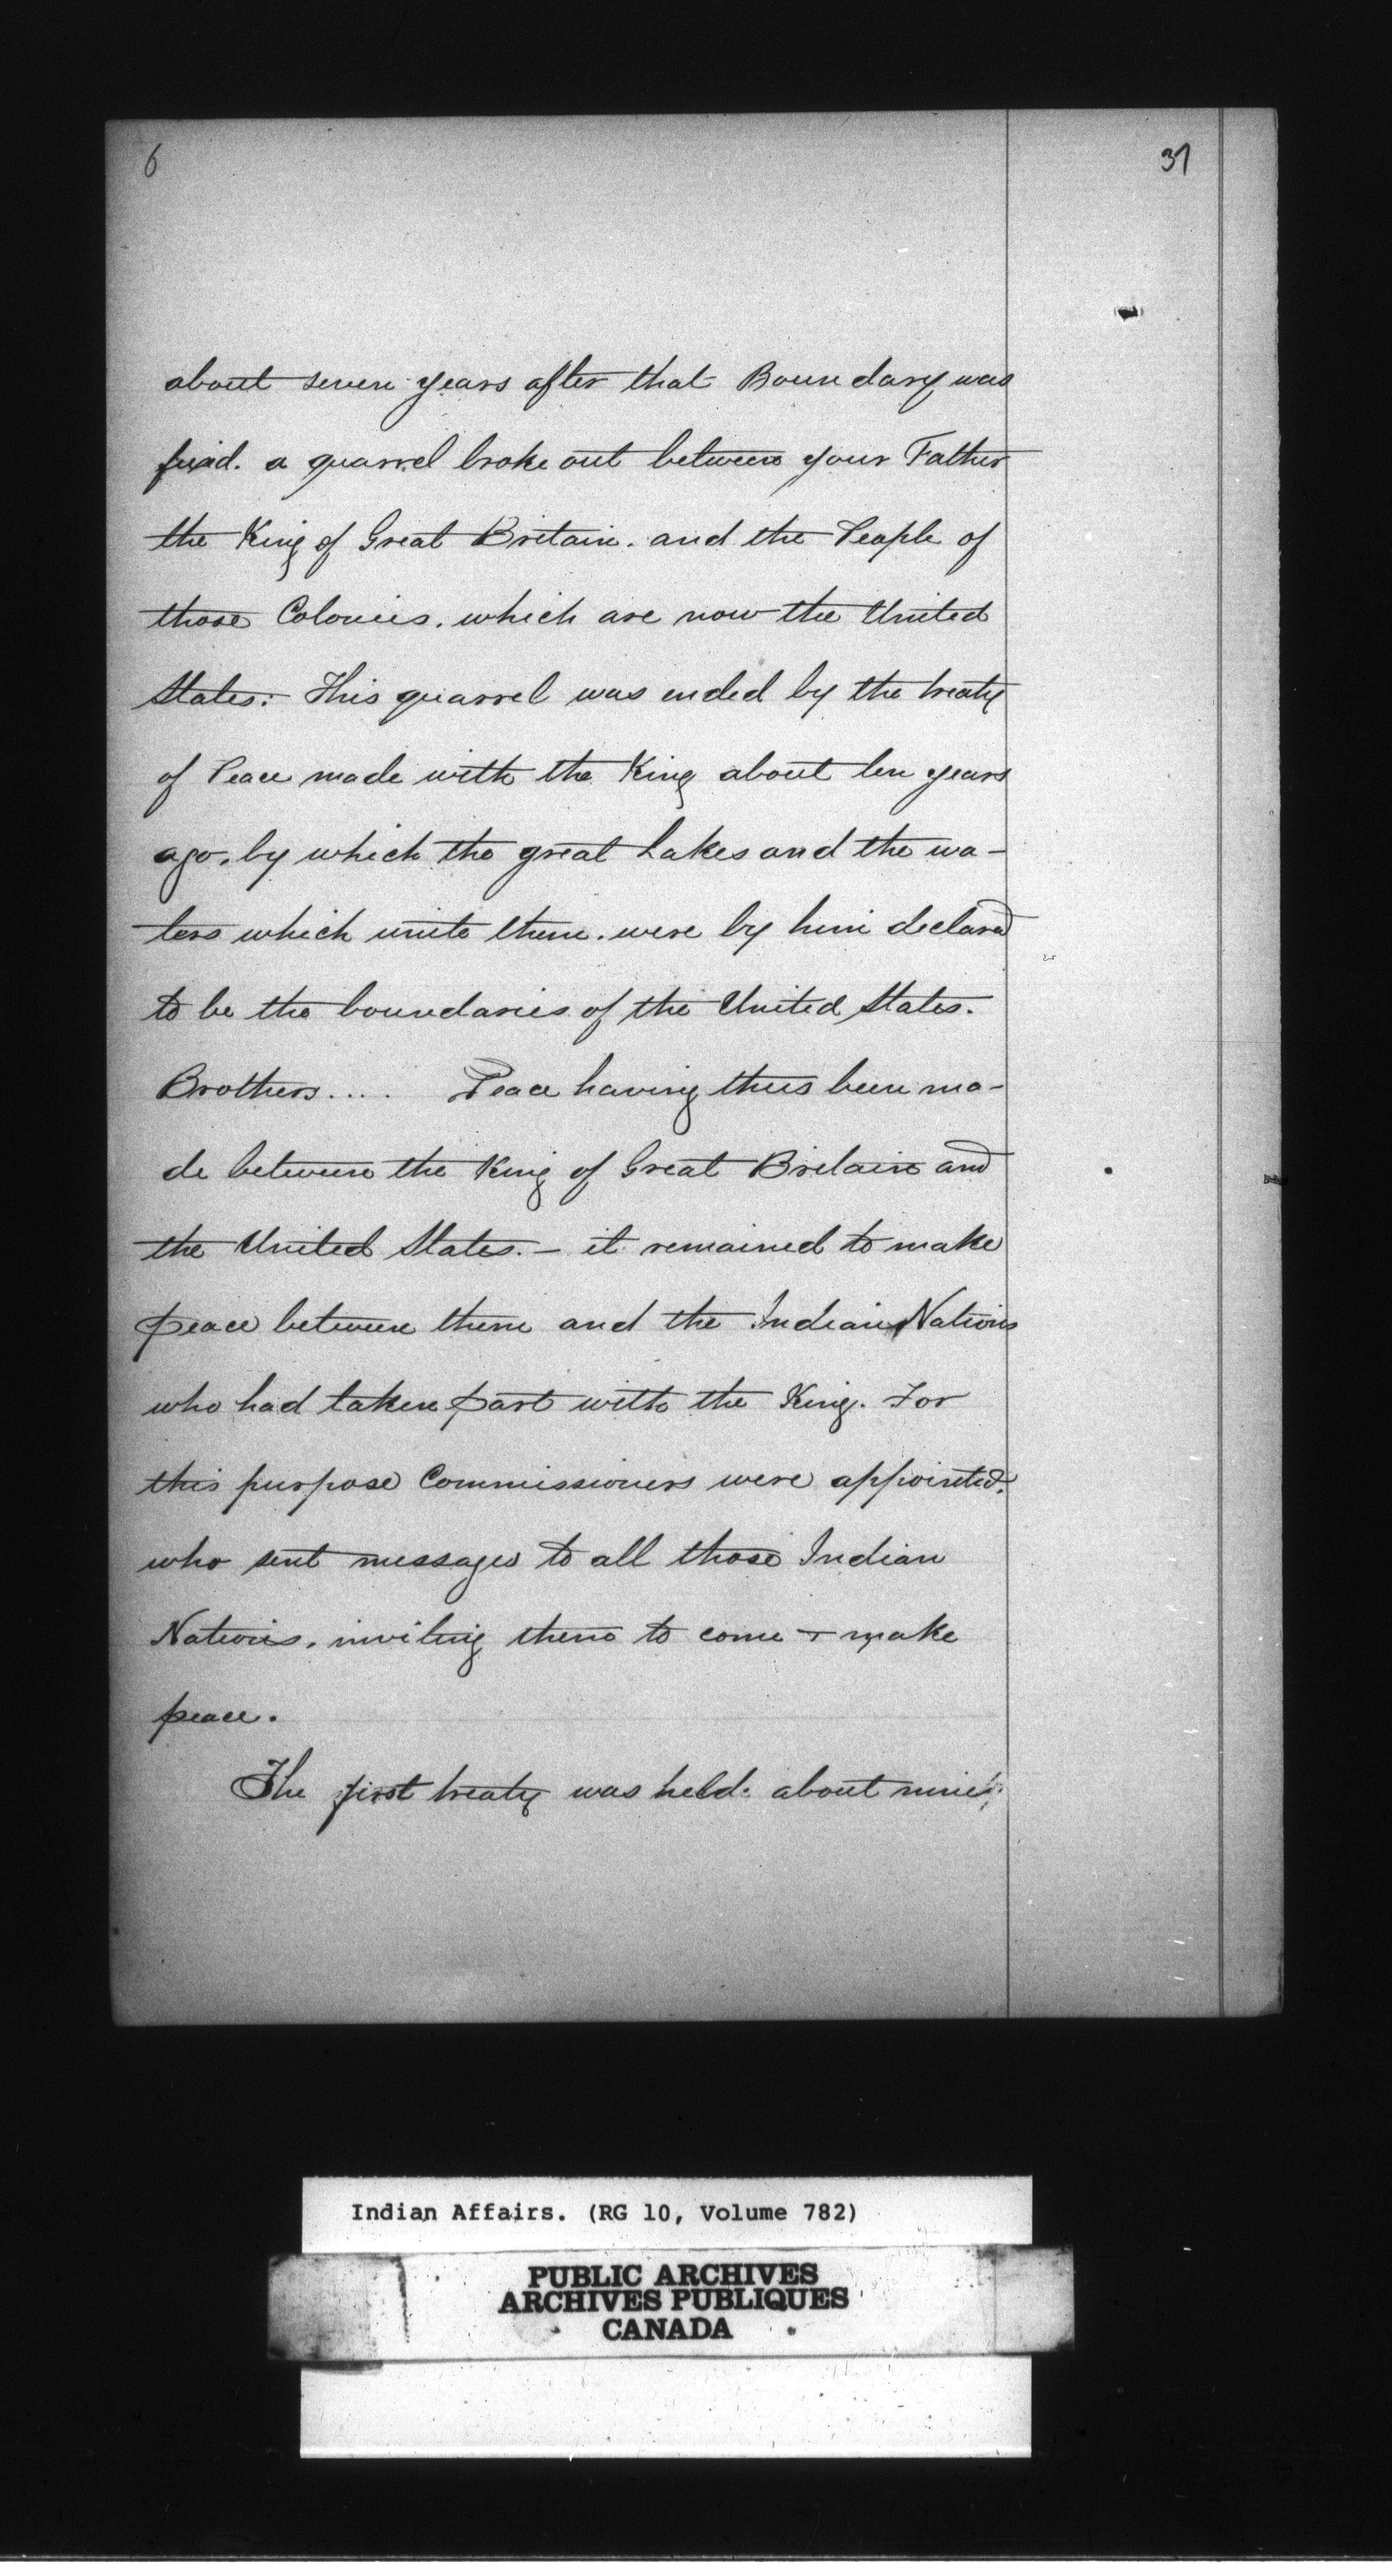 6
37
about seven years after that Boundary was
fixed. a quarrel broke out between your Father
the King of Great Britain. and the People of
those Colonies. which are now the United
States: This quarrel was ended by the treaty
of Peace made with the King about ten years
ago. by which the great Lakes and the wa-
ters which unite them. were by him declared
to be the boundaries of the United States.
Brothers.... Peace having thus been ma-
de between the King of Great Britain and
the United States. - it remained to make
peace between them and the Indian Nations
who had taken part with the King. For
this purpose Commissioners were appointed.
who sent messages to all those Indian
Nations. inviting them to come & make
peace.
The first treaty was held. about nine
Indian Affairs. (RG 10, Volume 782)
PUBLIC ARCHIVES
ARCHIVES PUBLIQUES
CANADA